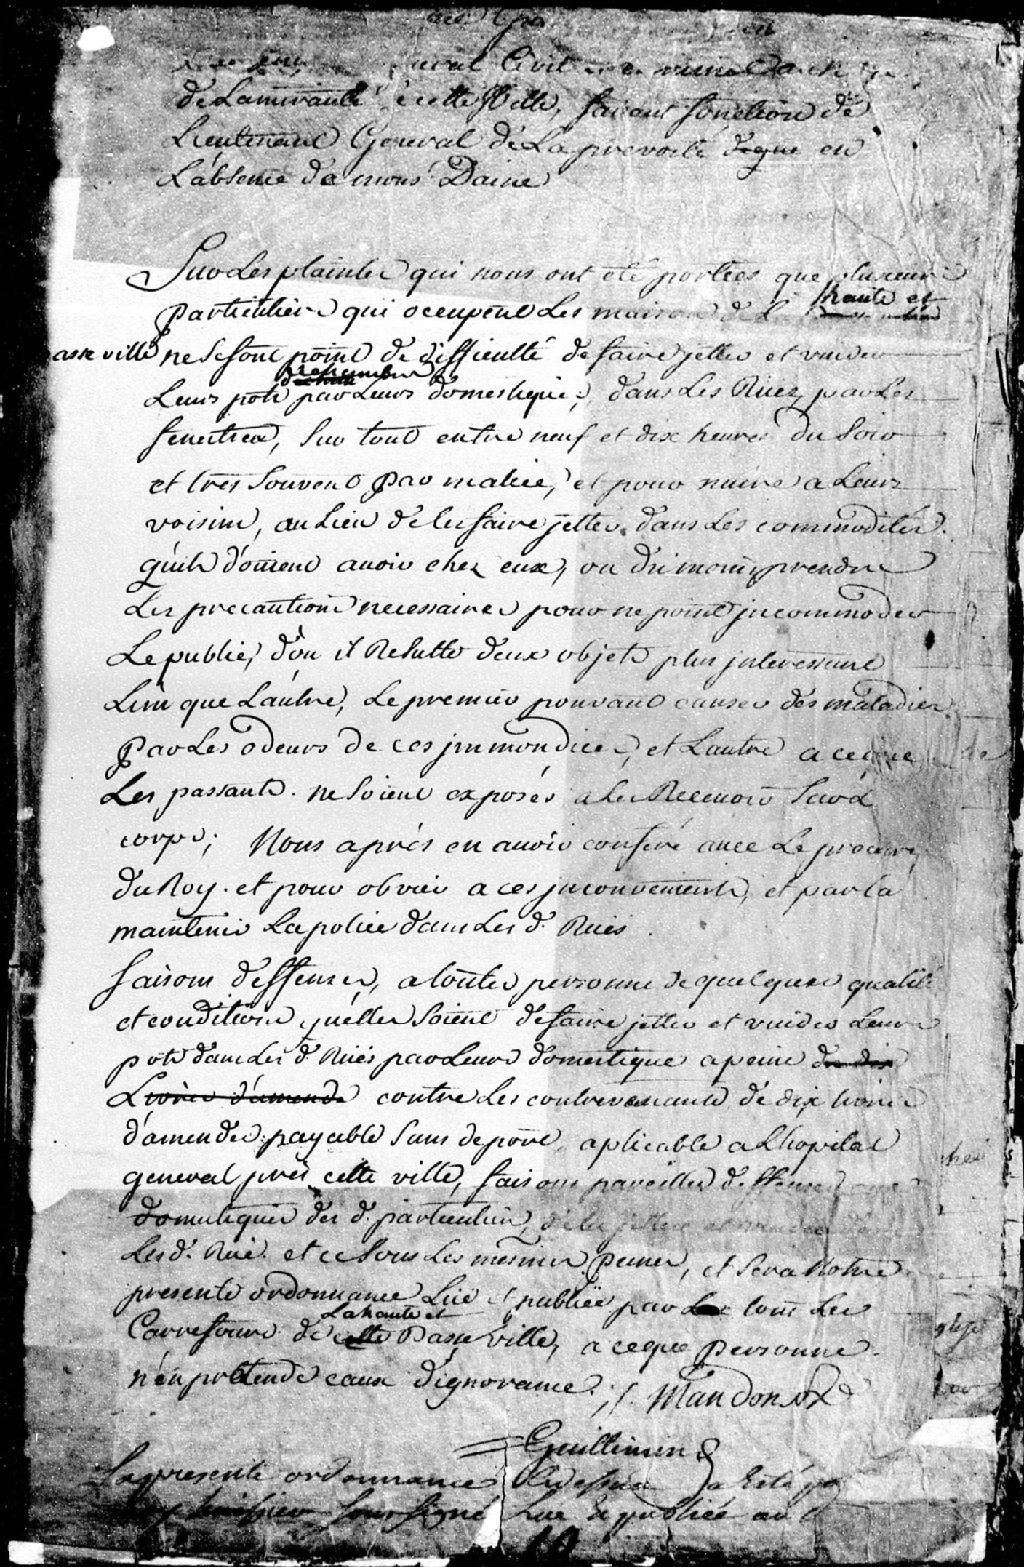 Civil
de Lamirauté cette Ville, faisant fonction de
Lieutenant General de La prevosté en
Labsence de mons Daine
Sur Les plaintes qui nous ont eté portées que plusieurs
particuliers qui occupent Les maisons de haute et
basse ville ne se font point de difficulté de faire jetter et vuider
Leurs pots par Leurs domestiques, dans Les Rües par Les
fenestres, Sur tout entre neuf et dix heures du Soir
et tres Souvent par malice, et pour nuire a Leurs
voisins, au Lieu de les faire jetter dans Les commodités
quils doivent avoir chez eux, ou du moins prendre
Les precautions necessaires pour ne point jncommoder
Le public, d'ou il Resulte deux objets plus jnteressant
Lun que Lautre, Le premier pouvant causer des maladies
par Les odeurs de ces jmmondices, et Lautre a ceque
Les passants ne Soient exposés a Les Recevoir Sur Le
corps; Nous aprés en avoir conferé avec Le procureur
du Roy et pour obvier a ces jnconvenients, et par la
maintenir La police dans Les d. Rües
faisons deffenses, a toutes personnes de quelques qualité
et condition qu'elles Soient de faire jetter et vuider Leurs
pots dans Les d. Rües par Leurs domestique a peine de dix
Livres d'amende contre Les contrevenants de dix livres
d'amendes payable Sans deport, aplicable a Lhopital
general prés cette ville, faisons pareilles deffenses aux
domestiques des d. particuliers, de les jetter et vuider
Les d. Rües et ce Sous Les mesmes peines, et Sera Notre
presente ordonnance Lüe et publiée par tous Les
Carrefours de La haute et Basse Ville, a ceque personne
n'en pretende cause d'ignorance
Guillimin
La presente ordonnance a Esté
huissier Soussigné Lue & publiée au